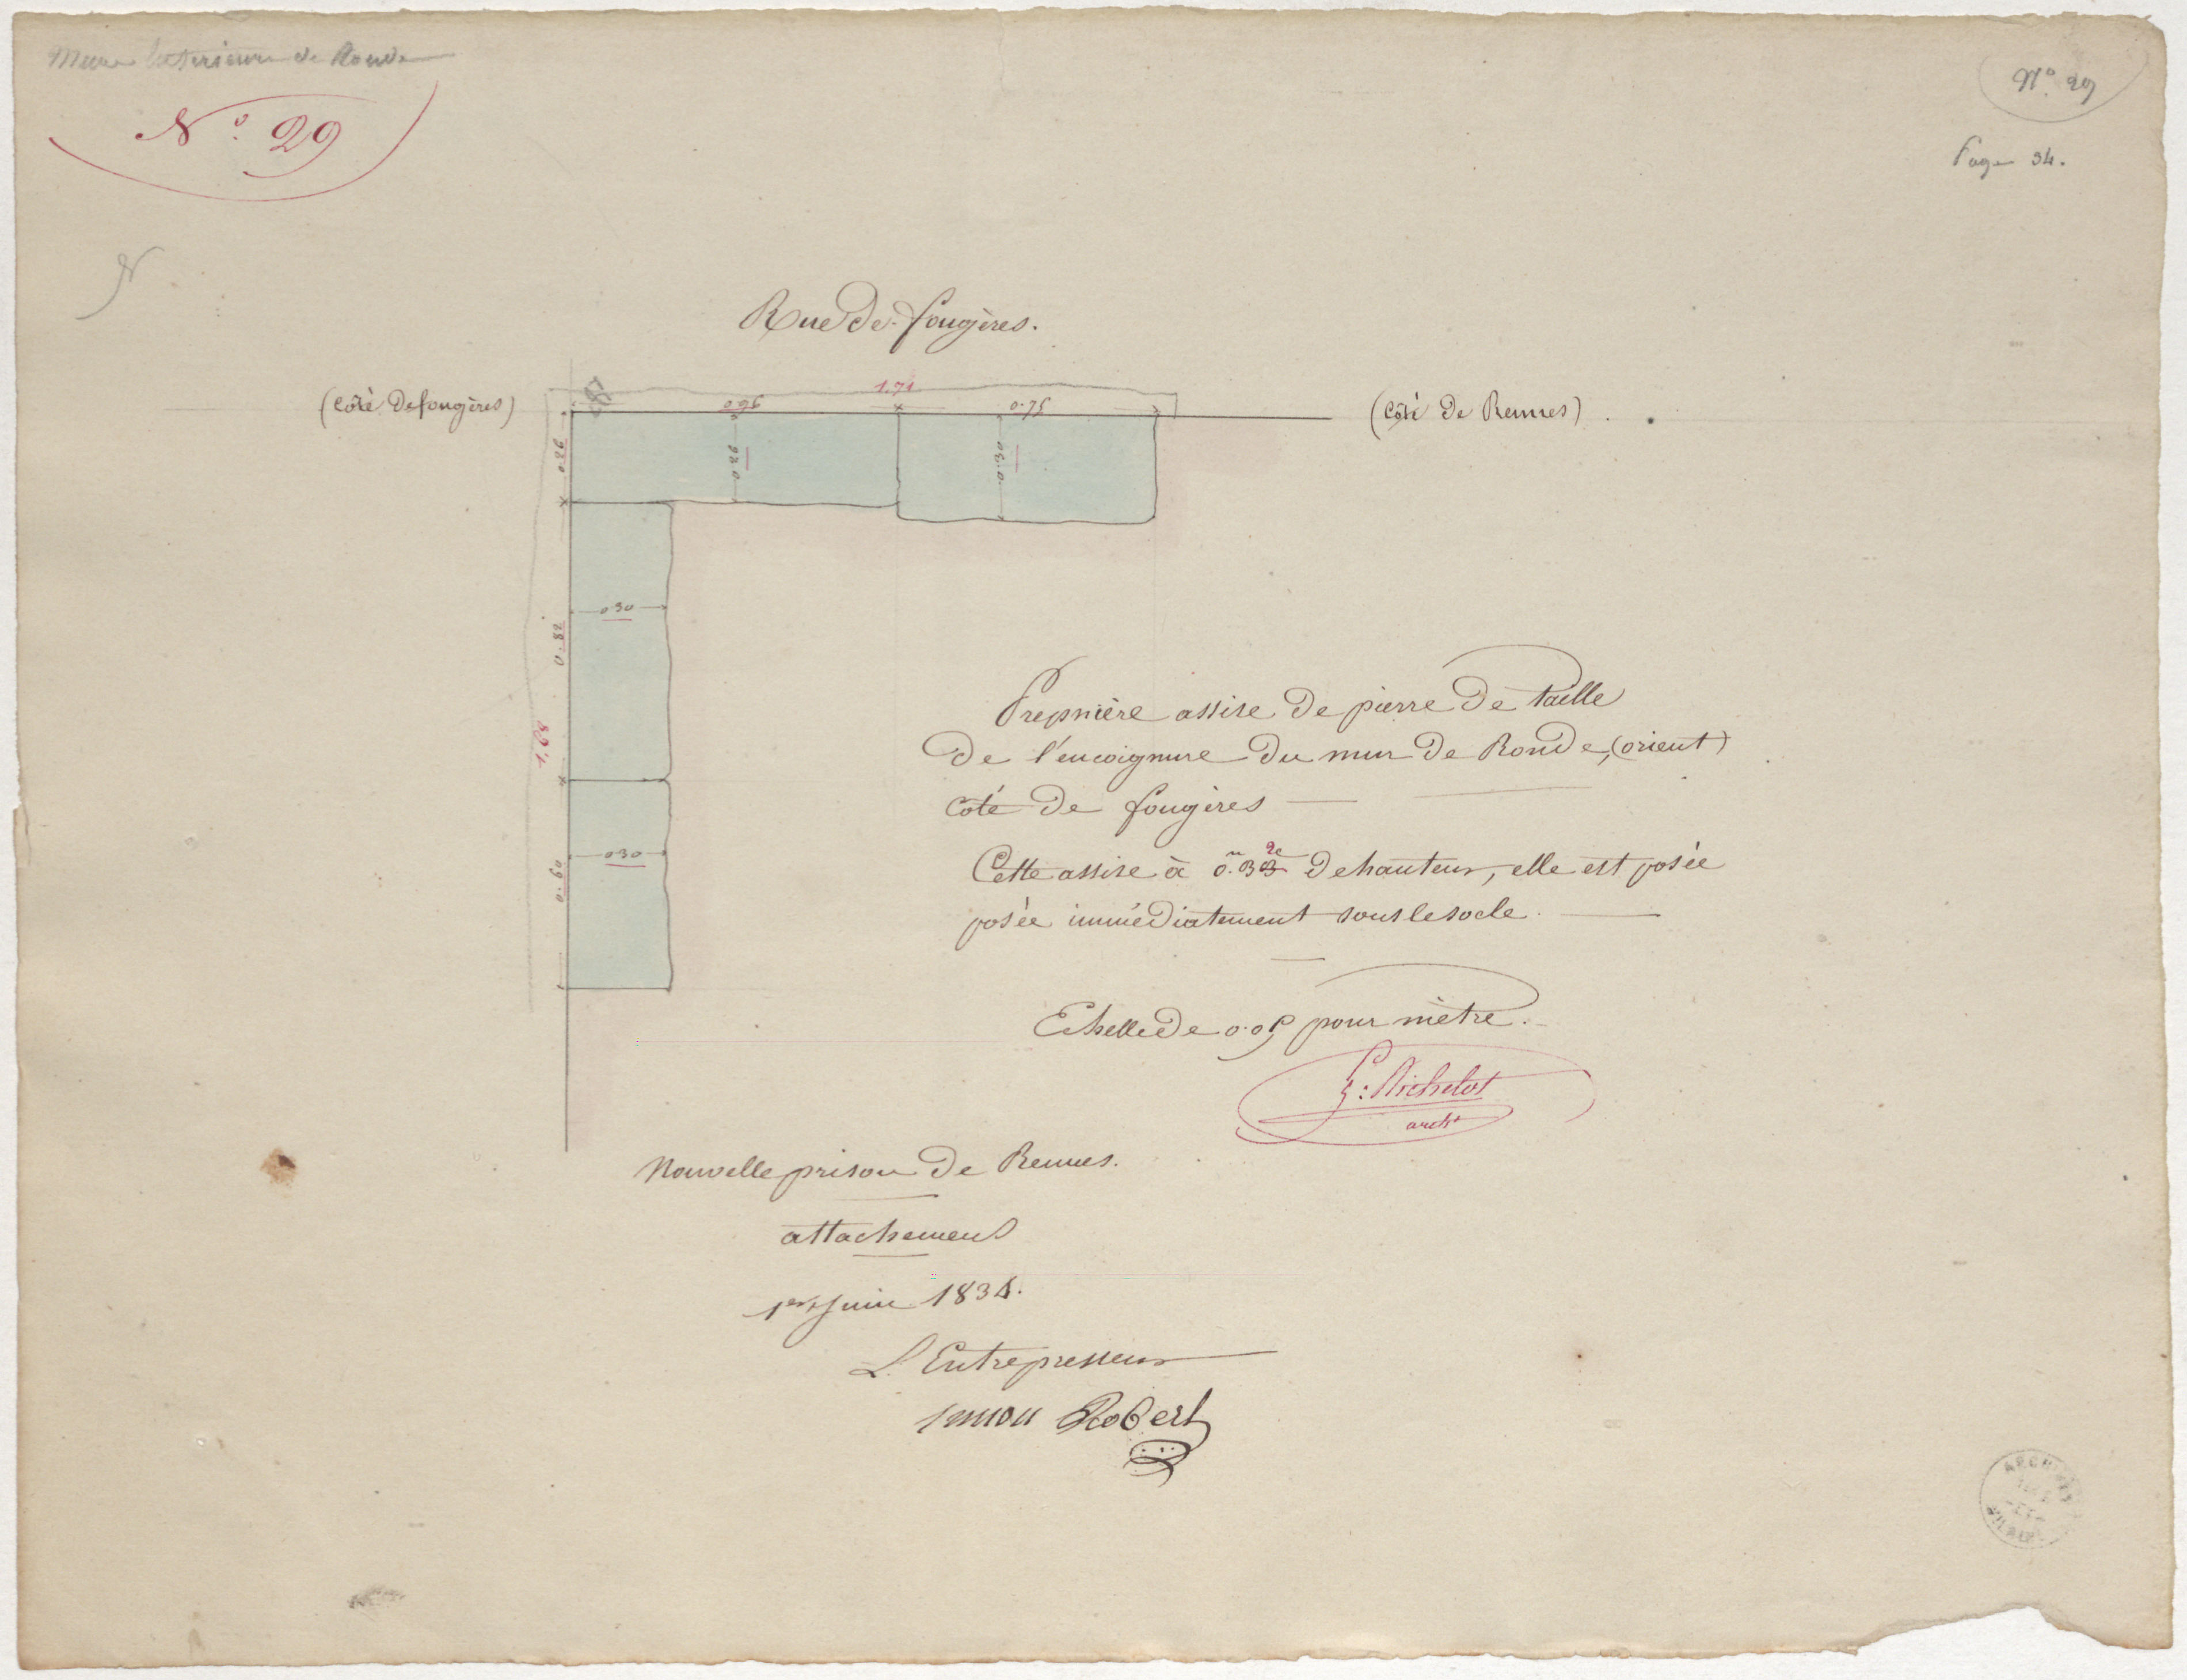 Murs Interieurs de Ronde
N° 29
N° 29
Page 34.
N
Rue de fougères.
(Côté de fougères)
1,71
(Côté de Rennes)
0.96
0.75
0.26
0.26
0.30
0.30
0.82
1,68
0.30
0.60
Première assise de pierre de taille
de l'encoignure du mur de Ronde, (orient)
Coté de fougères
Cette assise à 0.m 33 de hauteur, elle est posée
posée immédiatement sous le socle.
Echelle de 0.05 pour mètre.
Richelot
archt
Nouvelle prison de Rennes.
attachement
1er Juin 1834.
L'Entrepreneur
simon Robert